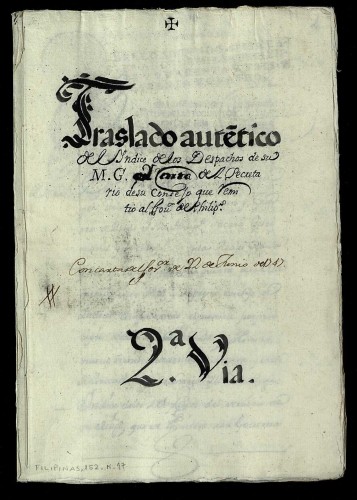 ✠
Traslado autētico
del Yndice de los Despachos de su
M. G. del Secreta
rio de su Consejo que remi
tio al Gouor. de Philips.
Con carta del Gor. de 22 de Junio de 1747.
2.ª Via.
FILIPINAS, 152, N. 97